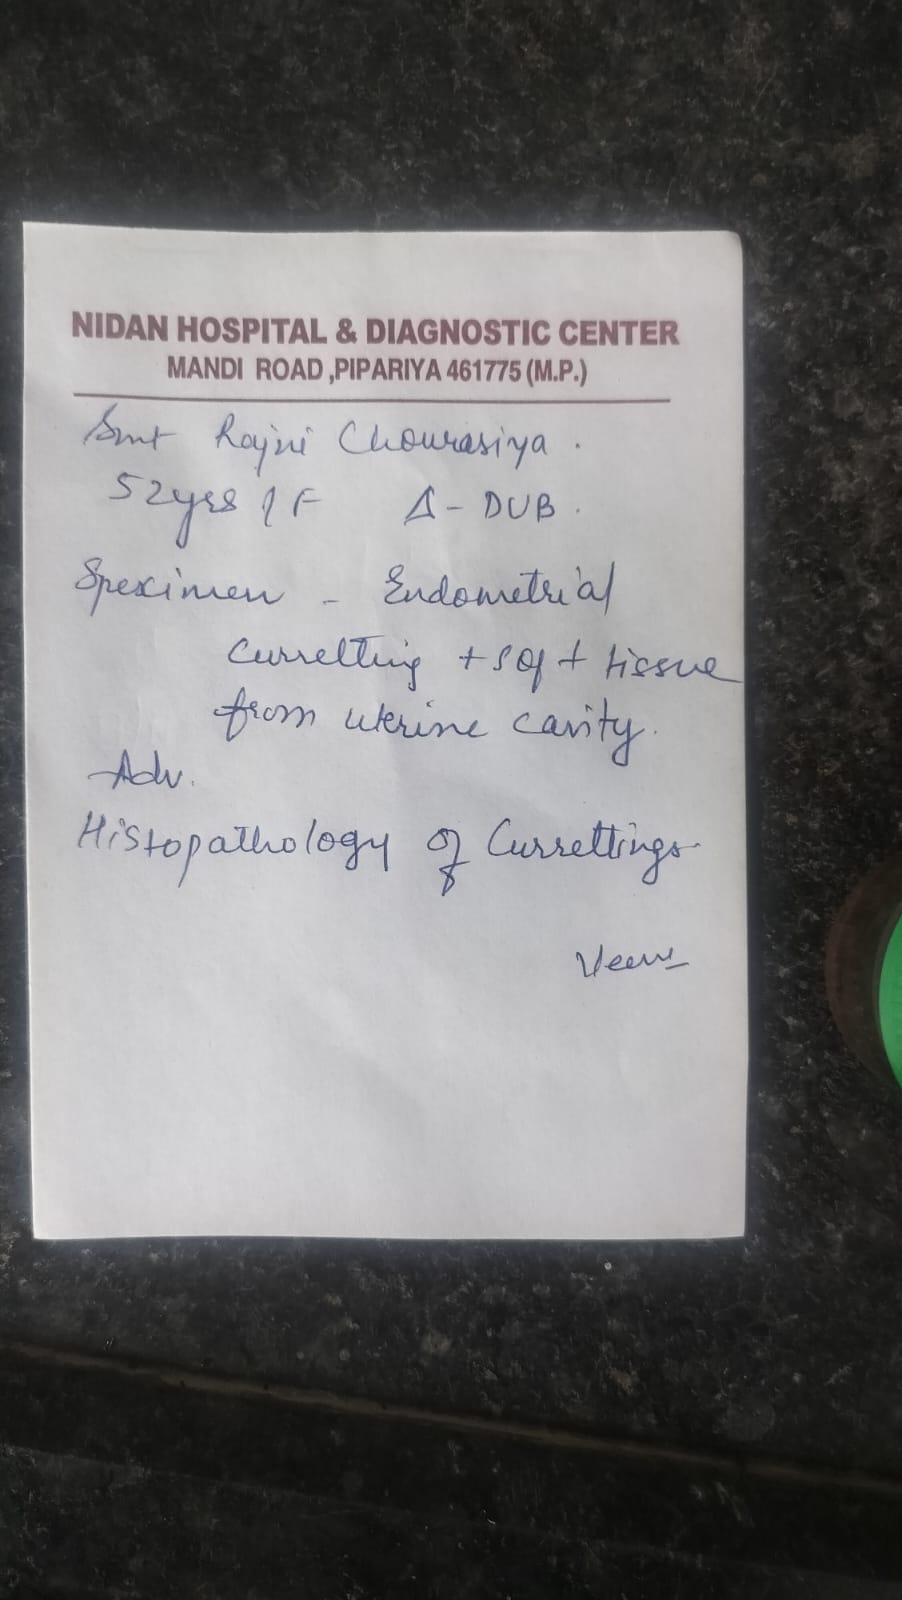 NIDAN HOSPITAL & DIAGNOSTIC CENTER
MANDI ROAD ,PIPARIYA 461775 (M.P.)
Smt Rajni Chourasiya .
52yrs / F Δ - DUB .
Speximen - Endometrial
Curretting + soft tissue
from uterine cavity.
Adv.
Histopathology of Currettings